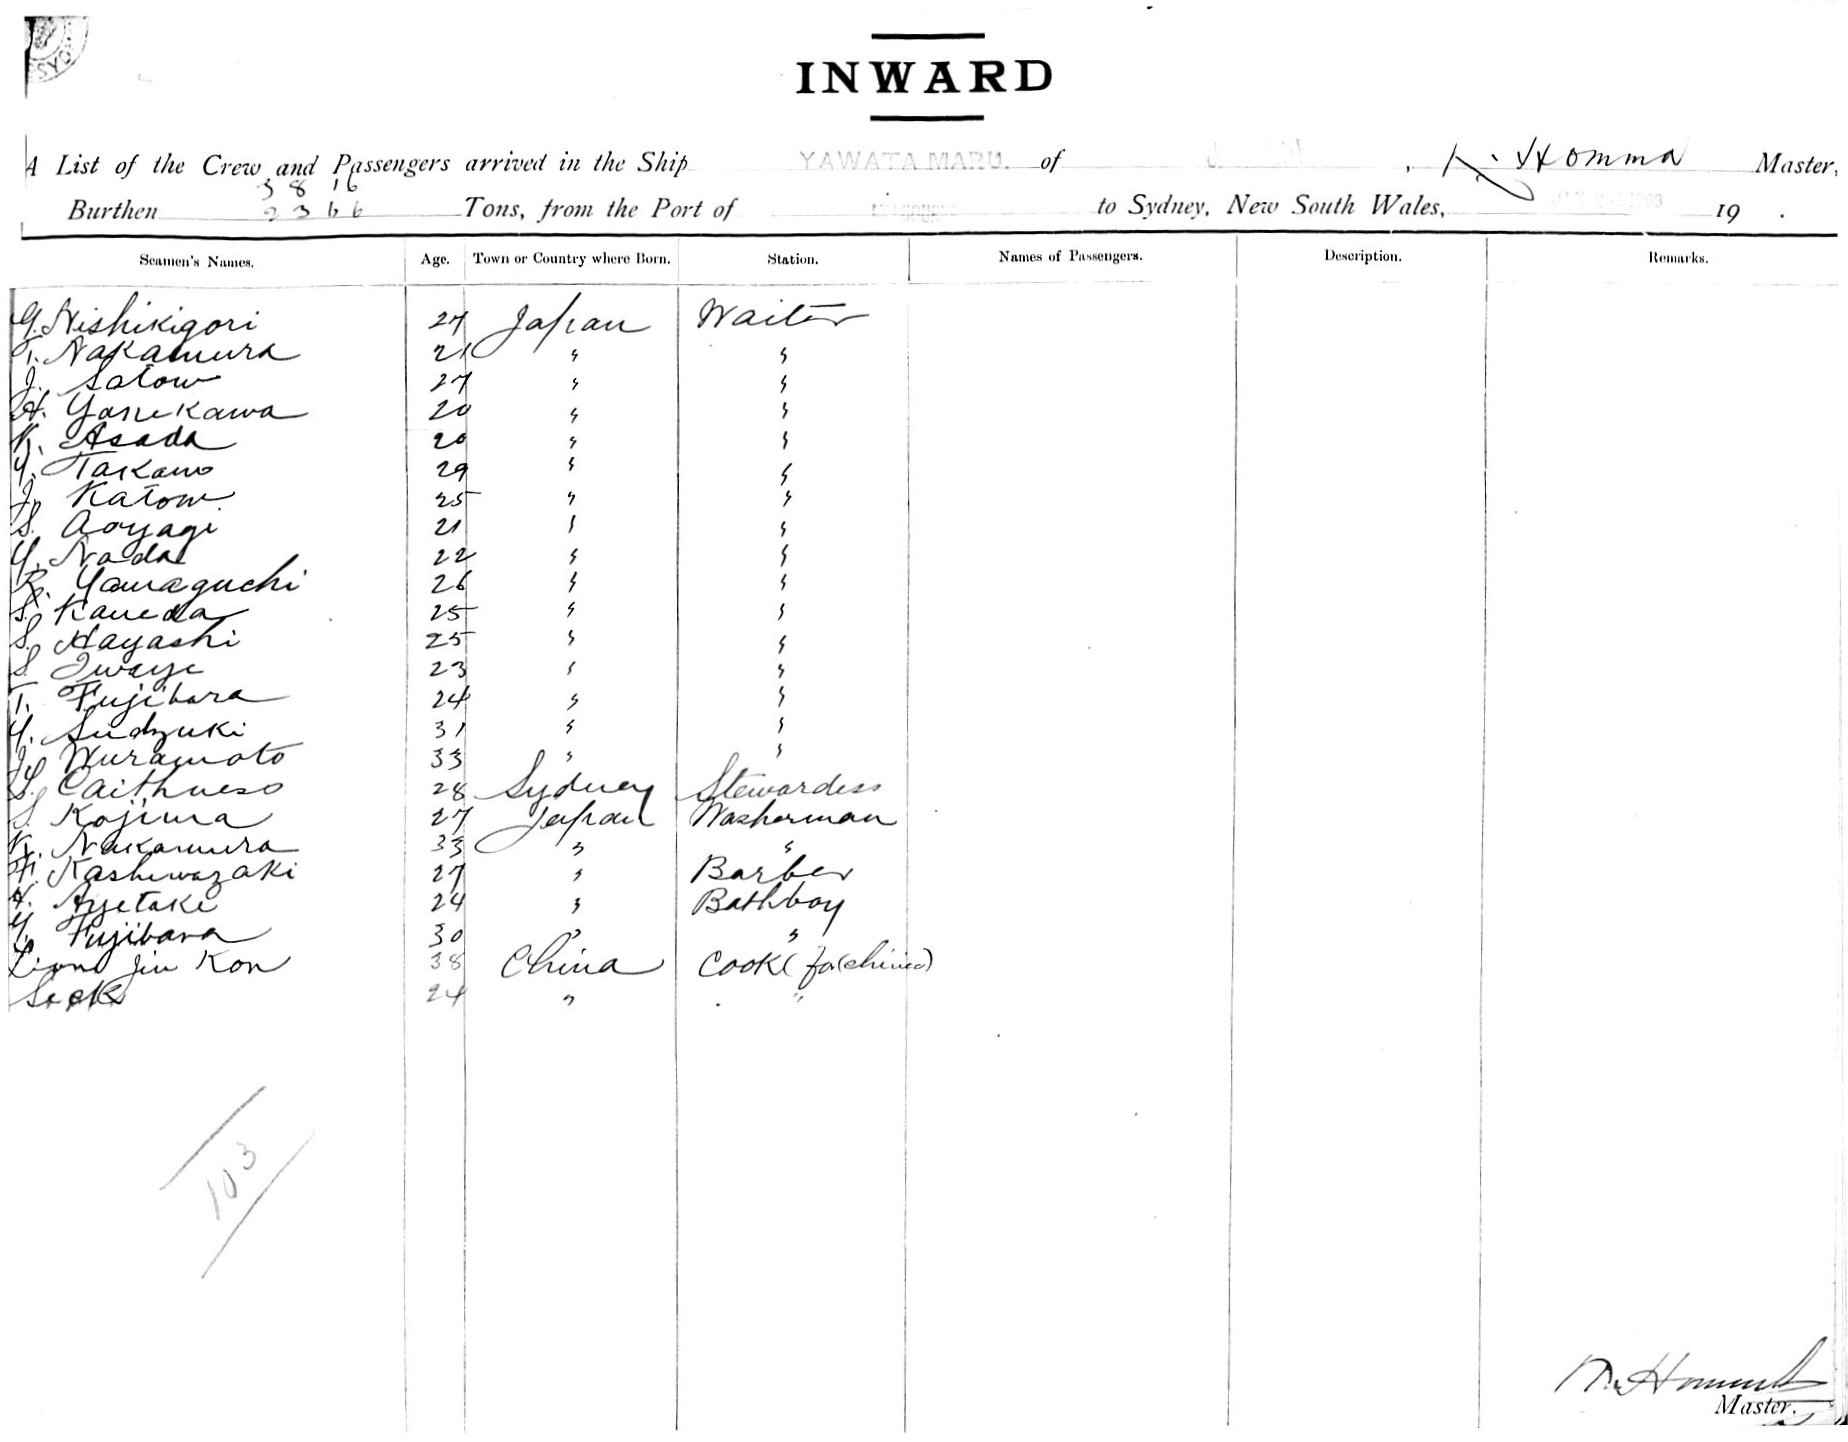 INWARD
A List of the Crew and Passengers arrived in the Ship YAWATA MARU. of , K. Homma Master,
3816
Burthen 2366 Tons, from the Port of MELBOURNE to Sydney, New South Wales, 19 .
Seamen's Names. Age. Town or Country where Born. Station. Names of Passengers. Description. Remarks.
G. Nishikigori 27 Japan Waiter
T. Nakamura 21 " "
J. Satow 27 " "
H. Yonekawa 20 " "
K. Asada 20 " "
Y. Takano 29 " "
J. Katow 25 " "
S. Aoyagi 21 " "
Y. Noda 22 " "
R. Yamaguchi 26 " "
S. Kaneda 25 " "
S. Hayashi 25 " "
S. Iwaye 23 " "
T. Fujihara 24 " "
Y. Sudzuki 31 " "
J. Muramoto 33 " "
S. Caithness 28 Sydney Stewardess
S. Kojima 27 Japan Washerman
K. Nakamura 33 " "
H. Kashiwazaki 27 " Barber
H. Ayetake 24 " Bathboy
Y. Fujihara 30 " "
Jin Kon 38 China Cook (for chinese)
24 " "
103
Homma
Master.